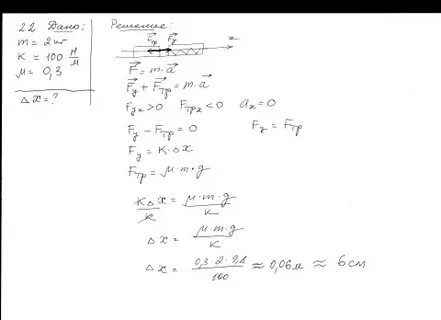 22 Дано:
m = 2 кг
K = 100 Н/м
μ = 0,3
Δx = ?
Решение:
Fтр Fу x
F = m·a
Fу + Fтр = m·a
Fуx > 0 Fтрx < 0 ax = 0
Fу − Fтр = 0 Fу = Fтр
Fу = K·Δx
Fтр = μ·m·g
KΔx/K = μ·m·g/K
Δx = μ·m·g/K
Δx = 0,3·2·9,8/100 ≈ 0,06м ≈ 6см